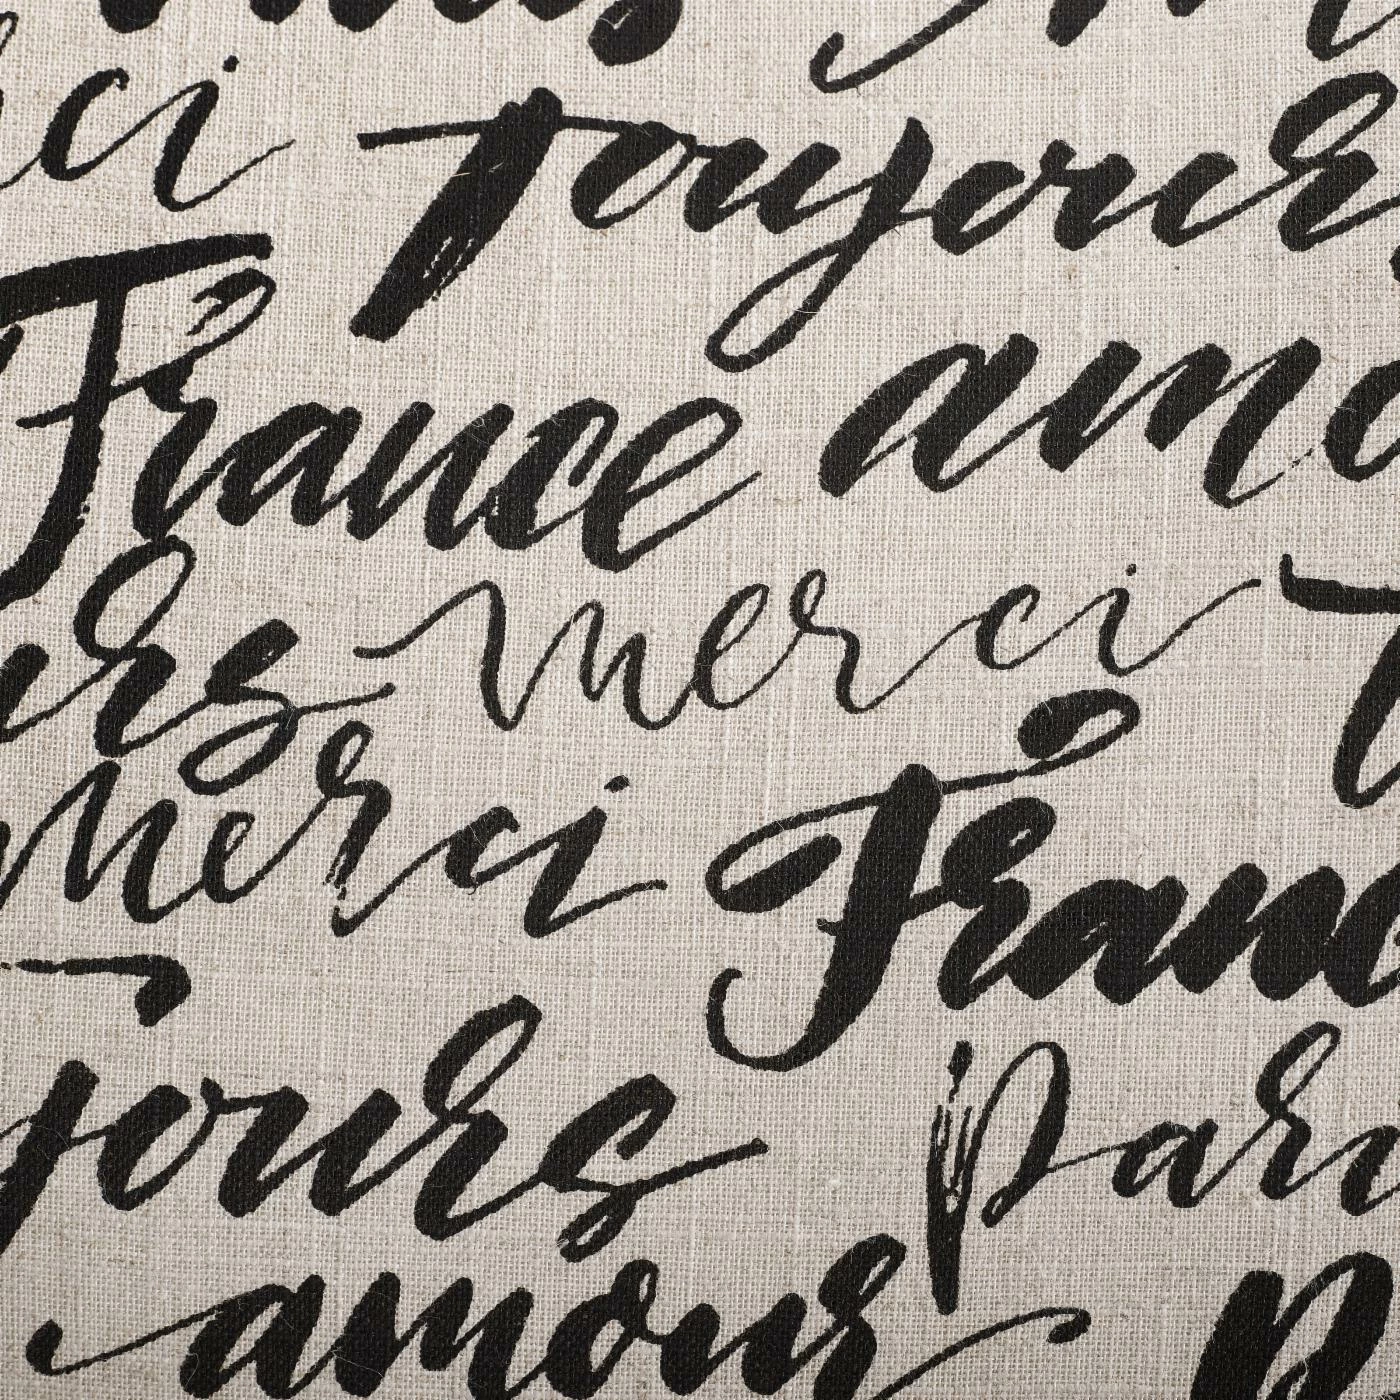 ci Toujour
France amo
urs merci
merci Franc
jours Pari
amour